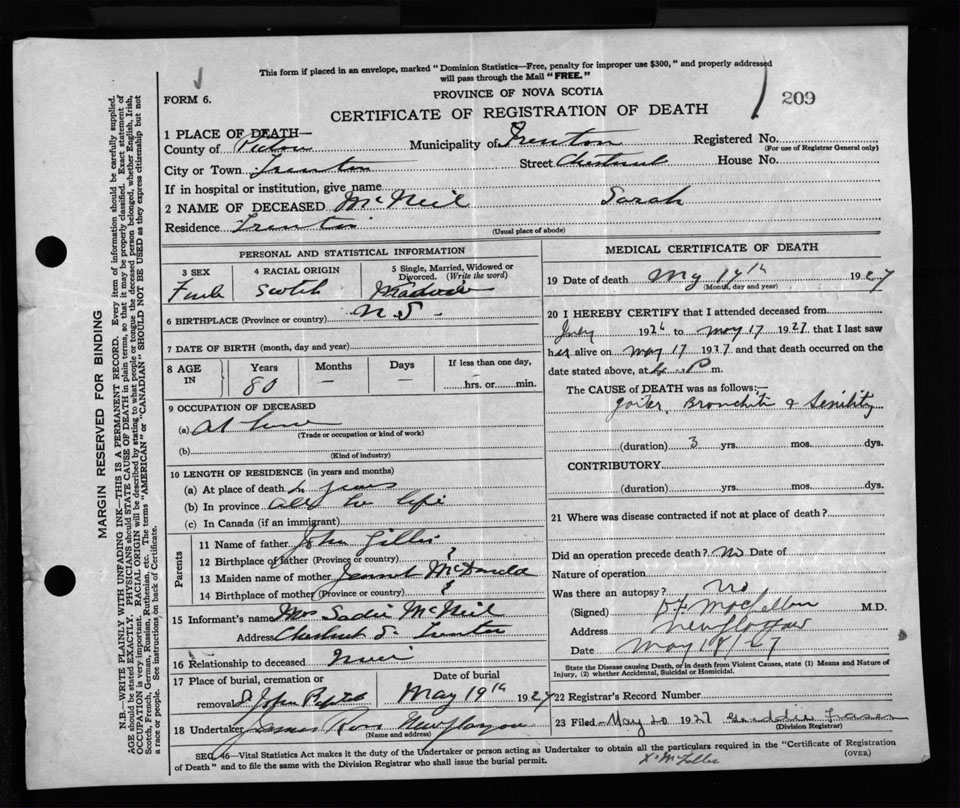 This form if placed in an envelope, marked "Dominion Statistics—Free, penalty for improper use $300," and properly addressed
will pass through the Mail "FREE."
FORM 6.
PROVINCE OF NOVA SCOTIA
CERTIFICATE OF REGISTRATION OF DEATH
209
1 PLACE OF DEATH—
County of Pictou Municipality of Trenton Registered No.
(For use of Registrar General only)
City or Town Trenton Street Chestnut House No.
If in hospital or institution, give name
2 NAME OF DECEASED McNeil Sarah
Residence Trenton
(Usual place of abode)
PERSONAL AND STATISTICAL INFORMATION
3 SEX 4 RACIAL ORIGIN 5 Single, Married, Widowed or
Divorced. (Write the word)
Scotch
6 BIRTHPLACE (Province or country) N.S.
7 DATE OF BIRTH (month, day and year)
8 AGE IN Years Months Days If less than one day,
80 — — — hrs. or min.
9 OCCUPATION OF DECEASED
(a) At home
(Trade or occupation or kind of work)
(b)
(Kind of industry)
10 LENGTH OF RESIDENCE (in years and months)
(a) At place of death years
(b) In province life
(c) In Canada (if an immigrant)
Parents
11 Name of father John Gillis
12 Birthplace of father (Province or country) ?
13 Maiden name of mother Jennet McDonald
14 Birthplace of mother (Province or country) ?
15 Informant's name Mrs Sadie McNeil
Address Chestnut S Trenton
16 Relationship to deceased
17 Place of burial, cremation or Date of burial
removal May 19th 1927
18 Undertaker James Ross New Glasgow
(Name and address)
MEDICAL CERTIFICATE OF DEATH
19 Date of death 1927
(Month, day and year)
20 I HEREBY CERTIFY that I attended deceased from
July 1926 to May 17 1927 that I last saw
her alive on May 17 1927 and that death occurred on the
date stated above, at P m.
The CAUSE of DEATH was as follows:—
Goiter, Bronchitis & Senility
(duration) 3 yrs. mos. dys.
CONTRIBUTORY
(duration) yrs. mos. dys.
21 Where was disease contracted if not at place of death?
Did an operation precede death? No Date of
Nature of operation
Was there an autopsy? No
(Signed) M.D.
Address New Glasgow
Date May 18/27
State the Disease causing Death, or in death from Violent Causes, state (1) Means and Nature of
Injury, (2) whether Accidental, Suicidal or Homicidal.
22 Registrar's Record Number
23 Filed May 20 1927 Fraser
(Division Registrar)
SEC. 46—Vital Statistics Act makes it the duty of the Undertaker or person acting as Undertaker to obtain all the particulars required in the "Certificate of Registration
of Death" and to file the same with the Division Registrar who shall issue the burial permit. (OVER)
MARGIN RESERVED FOR BINDING
N.B.—WRITE PLAINLY WITH UNFADING INK—THIS IS A PERMANENT RECORD. Every item of information should be carefully supplied.
AGE should be stated EXACTLY. PHYSICIANS should STATE CAUSE OF DEATH in plain terms, so that it may be properly classified. Exact statement of
OCCUPATION is very important. RACIAL ORIGIN will be described by stating to what people or tongue the deceased person belonged, whether English, Irish,
Scotch, French, German, Russian, Ruthenian, etc. The terms "AMERICAN" or "CANADIAN" SHOULD NOT BE USED as they express citizenship but not
a race or people. See instructions on back of Certificate.